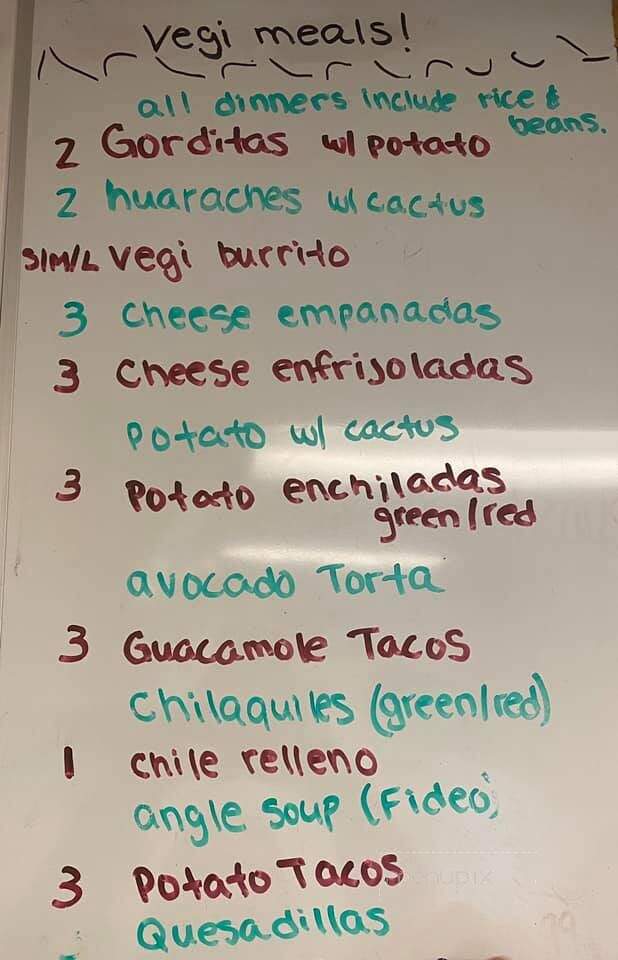 Vegi meals!
all dinners include rice &
beans.
2 Gorditas w/ potato
2 huaraches w/ cactus
S/M/L Vegi burrito
3 cheese empanadas
3 cheese enfrijoladas
Potato w/ cactus
3 Potato enchiladas
green/red
avocado Torta
3 Guacamole Tacos
Chilaquiles (green/red)
1 chile relleno
angle soup (Fideo)
3 Potato Tacos
Quesadillas